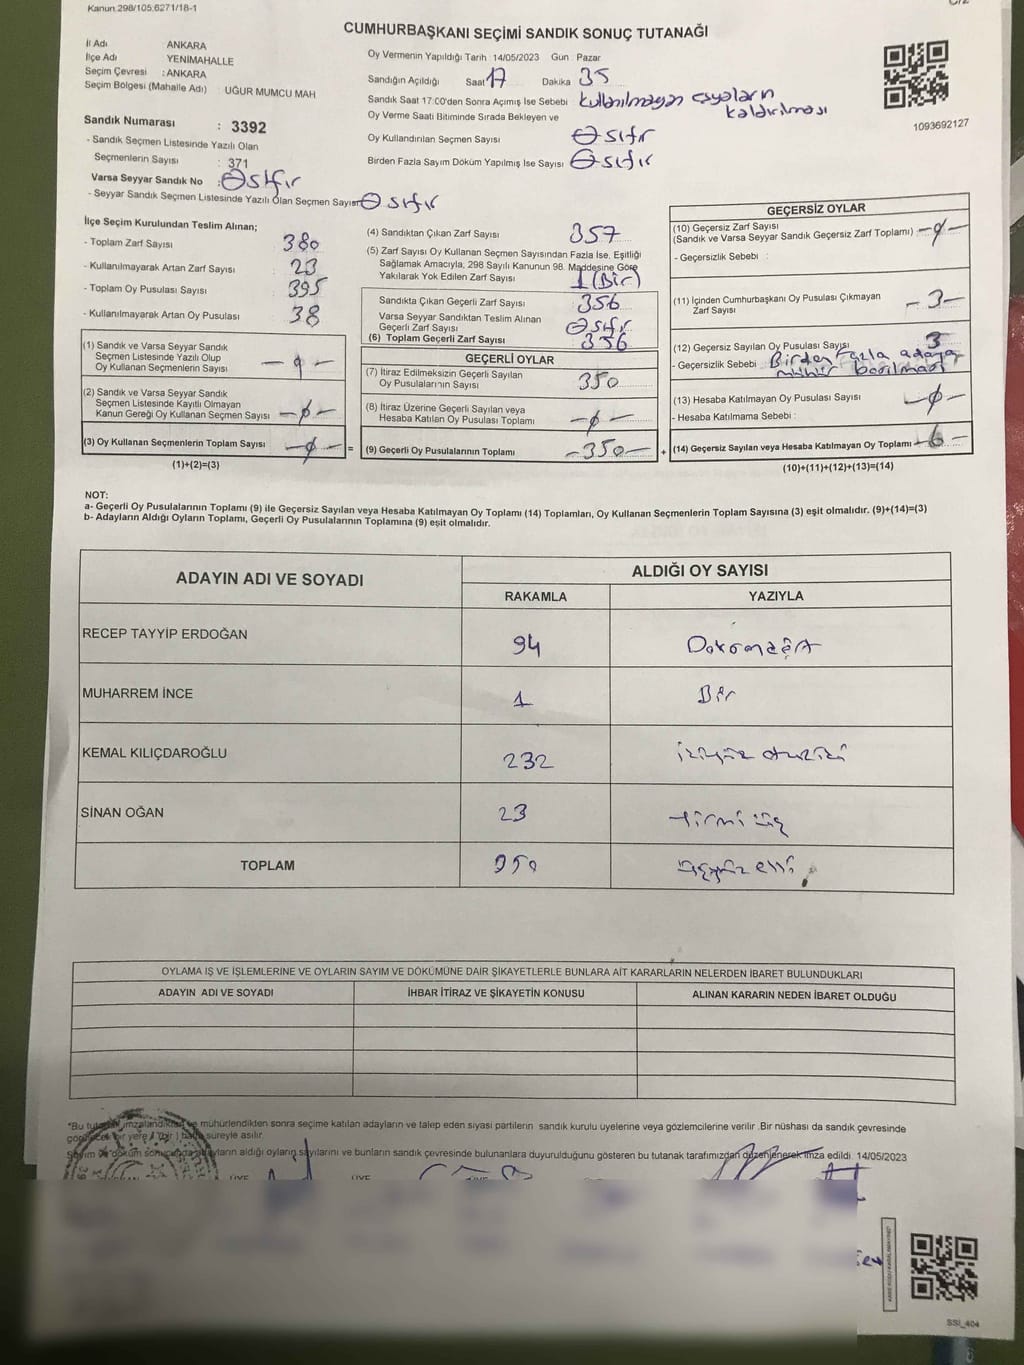 Kanun 298/105.6271/18-1
CUMHURBAŞKANI SEÇİMİ SANDIK SONUÇ TUTANAĞI
İl Adı ANKARA
İlçe Adı YENİMAHALLE
Seçim Çevresi : ANKARA
Seçim Bölgesi (Mahalle Adı) : UĞUR MUMCU MAH
Sandık Numarası : 3392
- Sandık Seçmen Listesinde Yazılı Olan
Seçmenlerin Sayısı : 371
Varsa Seyyar Sandık No : 0 sıfır
- Seyyar Sandık Seçmen Listesinde Yazılı Olan Seçmen Sayısı 0 sıfır
Oy Vermenin Yapıldığı Tarih 14/05/2023 Gün Pazar
Sandığın Açıldığı Saat 17 Dakika 35
Sandık Saat 17:00'den Sonra Açımış İse Sebebi kullanılmayan eşyaların
kaldırılması
Oy Verme Saati Bitiminde Sırada Bekleyen ve
Oy Kullandırılan Seçmen Sayısı 0 sıfır
Birden Fazla Sayım Döküm Yapılmış İse Sayısı 0 sıfır
1093692127
İlçe Seçim Kurulundan Teslim Alınan;
- Toplam Zarf Sayısı 380
- Kullanılmayarak Artan Zarf Sayısı 23
- Toplam Oy Pusulası Sayısı 395
- Kullanılmayarak Artan Oy Pusulası 38
(1) Sandık ve Varsa Seyyar Sandık
Seçmen Listesinde Yazılı Olup
Oy Kullanan Seçmenlerin Sayısı - 0 -
(2) Sandık ve Varsa Seyyar Sandık
Seçmen Listesinde Kayıtlı Olmayan
Kanun Gereği Oy Kullanan Seçmen Sayısı - 0 -
(3) Oy Kullanan Seçmenlerin Toplam Sayısı - 0 - =
(1)+(2)=(3)
(4) Sandıktan Çıkan Zarf Sayısı 357
(5) Zarf Sayısı Oy Kullanan Seçmen Sayısından Fazla İse, Eşitliği
Sağlamak Amacıyla, 298 Sayılı Kanunun 98. Maddesine Göre
Yakılarak Yok Edilen Zarf Sayısı 1 (Bir)
Sandıkta Çıkan Geçerli Zarf Sayısı 356
Varsa Seyyar Sandıktan Teslim Alınan
Geçerli Zarf Sayısı 0 sıfır
(6) Toplam Geçerli Zarf Sayısı 356
GEÇERLİ OYLAR
(7) İtiraz Edilmeksizin Geçerli Sayılan
Oy Pusulalarının Sayısı 350
(8) İtiraz Üzerine Geçerli Sayılan veya
Hesaba Katılan Oy Pusulası Toplamı - 0 -
(9) Geçerli Oy Pusulalarının Toplamı - 350 - +
GEÇERSİZ OYLAR
(10) Geçersiz Zarf Sayısı
(Sandık ve Varsa Seyyar Sandık Geçersiz Zarf Toplamı) - 0 -
- Geçersizlik Sebebi :
(11) İçinden Cumhurbaşkanı Oy Pusulası Çıkmayan
Zarf Sayısı - 3 -
(12) Geçersiz Sayılan Oy Pusulası Sayısı 3
- Geçersizlik Sebebi Birden Fazla adaya
mühür basılması
(13) Hesaba Katılmayan Oy Pusulası Sayısı - 0 -
- Hesaba Katılmama Sebebi :
(14) Geçersiz Sayılan veya Hesaba Katılmayan Oy Toplamı - 6 -
(10)+(11)+(12)+(13)=(14)
NOT:
a- Geçerli Oy Pusulalarının Toplamı (9) ile Geçersiz Sayılan veya Hesaba Katılmayan Oy Toplamı (14) Toplamları, Oy Kullanan Seçmenlerin Toplam Sayısına (3) eşit olmalıdır. (9)+(14)=(3)
b- Adayların Aldığı Oyların Toplamı, Geçerli Oy Pusulalarının Toplamına (9) eşit olmalıdır.
ADAYIN ADI VE SOYADI ALDIĞI OY SAYISI
RAKAMLA YAZIYLA
RECEP TAYYİP ERDOĞAN 94 Doksandört
MUHARREM İNCE 1 Bir
KEMAL KILIÇDAROĞLU 232 ikiyüz otuziki
SİNAN OĞAN 23 yirmi üç
TOPLAM 350 üçyüz elli
OYLAMA İŞ VE İŞLEMLERİNE VE OYLARIN SAYIM VE DÖKÜMÜNE DAİR ŞİKAYETLERLE BUNLARA AİT KARARLARIN NELERDEN İBARET BULUNDUKLARI
ADAYIN ADI VE SOYADI İHBAR İTİRAZ VE ŞİKAYETİN KONUSU ALINAN KARARIN NEDEN İBARET OLDUĞU
"Bu tutanak imzalandıktan ve mühürlendikten sonra seçime katılan adayların ve talep eden siyasi partilerin sandık kurulu üyelerine veya gözlemcilerine verilir .Bir nüshası da sandık çevresinde
görülecek bir yere ( bir ) hafta süreyle asılır.
Sayım ve döküm sonucunda adayların aldığı oyların sayılarını ve bunların sandık çevresinde bulunanlara duyurulduğunu gösteren bu tutanak tarafımızdan düzenlenerek imza edildi. 14/05/2023
ÜYE ÜYE
SSİ_404